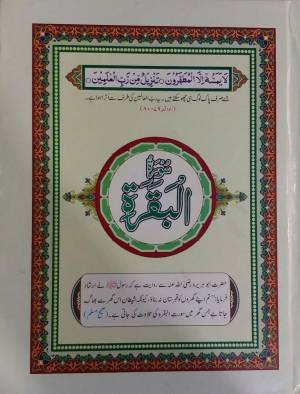 لَا يَمَسُّهٗٓ اِلَّا الْمُطَهَّرُوْنَ ۝ تَنْزِيْلٌ مِّنْ رَّبِّ الْعٰلَمِيْنَ ۝
جسے صرف پاک لوگ ہی چھو سکتے ہیں۔ یہ رب العالمین کی طرف سے اترا ہوا ہے۔
سورۃ
البقرۃ
حضرت ابو ہریرہ رضی اللہ عنہ سے روایت ہے کہ رسول ﷺ نے ارشاد
فرمایا: "تم اپنے گھروں کو قبرستان نہ بناؤ، کیونکہ شیطان اس گھر سے بھاگ
جاتا ہے جس گھر میں سورت البقرہ کی تلاوت کی جاتی ہے۔ (صحیح مسلم)